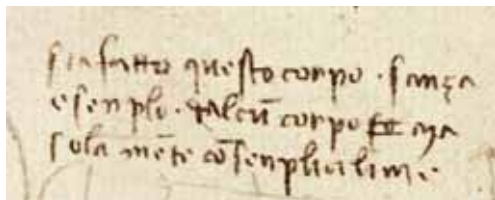 sia fatto questo corpo · sanza
esenplo · dalcū corpo ma
sola mēte cō senplici linie